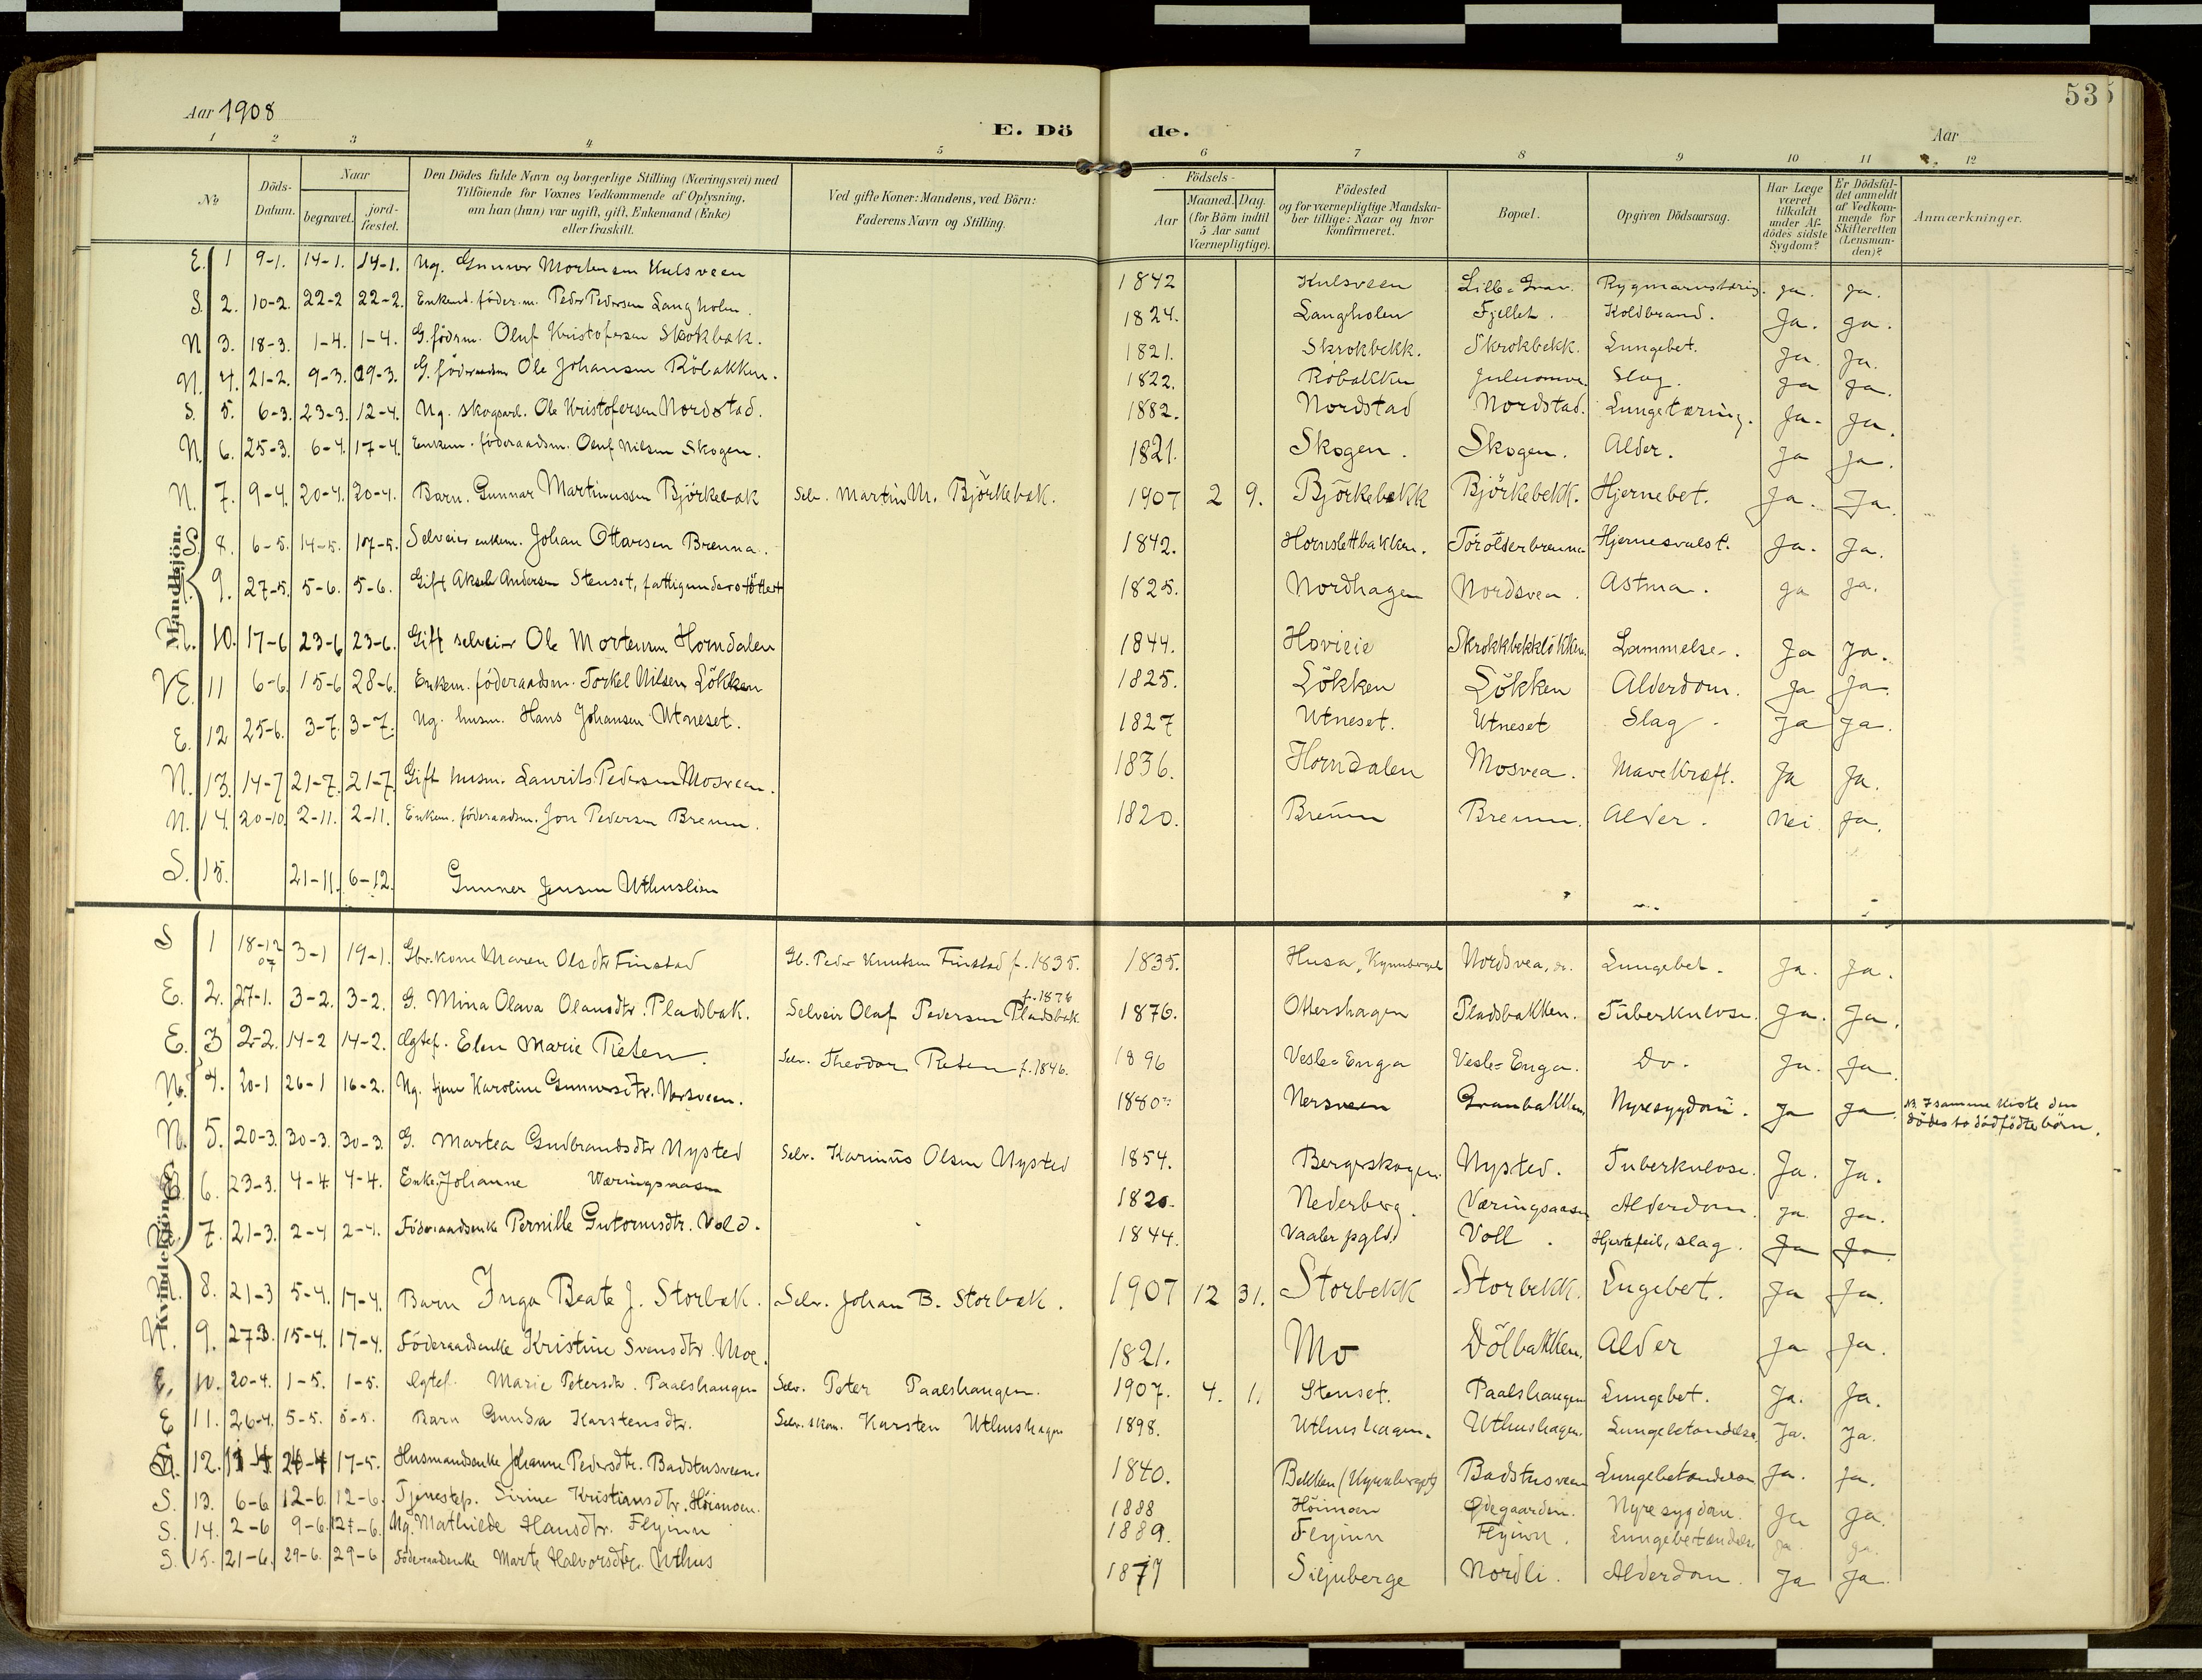 535
Aar 1908
E. Dö
de.
Aar
1 2 3 4 5 6 7 8 9 10 11 12
No
Döds-Datum.
Naar
begravet.
jord-fæstet.
Den Dödes fulde Navn og borgerlige Stilling (Næringsvei) med
Tilföiende for Voxnes Vedkommende af Oplysning,
om han (hun) var ugift, gift, Enkemand (Enke)
eller fraskilt.
Ved gifte Koner: Mandens, ved Börn:
Faderens Navn og Stilling.
Födsels-
Aar
Maaned. Dag.
(for Börn indtil
5 Aar samt
Værnepligtige).
Födested
og for værnepligtige Mandska-
ber tillige: Naar og hvor
konfirmeret.
Bopæl.
Opgiven Dödsaarsag.
Har Læge
været
tilkaldt
under Af-
dödes sidste
Sygdom?
Er Dödsfal-
det anmeldt
af Vedkom-
mende for
Skifteretten
(Lensman-
den)?
Anmærkninger.
Mandkjön.
E. 1 9-1. 14-1. 14-1. Ug. Gunner Mortensen Kulsveen 1842 Kulsveen ja. ja.
S. 2. 10-2. 22-2 22-2. Enkem. föder.m. Peder Pedersen Langholen. 1824. Langholen Fjellet. Koldbrand. Ja. ja.
N 3. 18-3. 1-4. 1-4. G. födrm. Oluf Kristofersen Skrokbæk. 1821. Skrokbekk. Skrokbekk. Lungebet. Ja. Ja.
N. 4. 21-2. 9-3. 29-3. G. föderaadsm Ole Johansen Röbakken. 1822. Röbakken Slag. Ja Ja.
S. 5. 6-3. 23-3. 12-4. Ug. skogsarb. Ole Kristofersen Nordstad. 1882. Nordstad Nordstad. Lungetæring. Ja. Ja.
N. 6. 25-3. 6-4. 17-4. Enkem. föderaadsm. Oluf Nilsen Skogen. 1821. Skogen. Skogen. Alder. Ja Ja.
N. 7. 9-4. 20-4. 20-4. Barn. Gunnar Martinussen Björkebæk Selv. Martin M. Björkebæk. 1907 2 9. Björkebekk Björkebekk. Hjernebet. Ja. Ja.
S. 8. 6-5. 14-5. 17-5. Selveier enkem. Johan Ottarsen Brenna. 1842. Hornslettbakken. Hjernesvulst. Ja. Ja.
9. 27-5. 5-6. 5-6. Gift Aksel Andersen Stenset, fattigunderstöttet 1825. Nordhagen Nordsvea. Astma. ja ja.
N. 10. 17-6 23-6 23-6. Gift selveier Ole Mortensen Horndalen 1844. Hovieie Skrokkbekklökken Lammelse. Ja Ja.
VE. 11 6-6. 15-6 28-6. Enkem. föderaadsm. Torkel Nilsen Lökken 1825. Lökken Lökken Alderdom. Ja Ja.
E. 12 25-6. 3-7. 3-7. Ug. husm. Hans Johansen Utneset. 1827 Utneset. Utneset Slag. Ja ja.
N. 13. 14-7 21-7. 21-7. Gift husm. Laurits Pedersen Mosveen. 1836. Horndalen Mosvea. Mavekræft. Ja Ja.
N. 14. 20-10. 2-11. 2-11. Enkem. föderaadsm. Jon Pedersen Brenna. 1820. Brenna Brenna. Alder. Nei Ja.
S. 15. 21-11. 6-12. Gunner Jensen Uthuslien
Kvindekjön.
S 1 18-12 07 3-1 19-1. Gbr.kone Maren Olsdtr Finstad Gb. Peder Knutsen Finstad f. 1835. 1835. Husa, Kynnberget Nordsvea, Lungebet. Ja. Ja.
E. 2. 27-1. 3-2. 3-2. G. Mina Olava Olausdtr. Pladsbak. Selveir Olaf Pedersen Pladsbak f. 1876 1876. Ottershagen Pladsbakken. Tuberkulose. Ja. Ja.
E. 3 2-2. 14-2 14-2. Elen Marie Reten. Selv. Theodor Reten f. 1846. 1896 Vesle=Enga Vesle=Enga. Do. Ja. Ja.
N. 4. 20-1 26-1 16-2. Ug. tjen Karoline Gunnersdtr. Nersveen. 1880 Nersveen Granbakken Nyresygdom. Ja Ja N. I samme kiste den
dödes to dödfödte börn.
N. 5. 20-3. 30-3. 30-3. G. Martea Gudbrandsdtr Nysted Selv. Karinus Olsen Nysted 1854. Bergerskogen. Nysted. Tuberkulose. Ja. Ja.
6. 23-3. 4-4. 4-4. Enke. Johanne Væringsaasen 1820. Nederberg. Væringsaasen Alderdom. Ja. Ja.
7. 21-3. 2-4 2-4. Föderaadsenke Pernille Gutormsdtr. Vold. 1844. Vaaler pgld. Voll. Hjertefeil, slag. Ja Ja
N. 8. 21-3 5-4. 17-4. Barn Inga Beate J. Storbæk. Selv. Johan B. Storbæk. 1907 12 31. Storbekk Storbekk. Lngebet. Ja Ja.
N. 9. 27-3. 15-4. 17-4. Föderaadsenke Kristine Svensdtr. Moe. 1821. Mo Dölbakken. Alder Ja Ja.
E. 10. 20-4. 1-5. 1-5. Marie Petersdtr. Paalshaugen Selv. Peter Paalshaugen. 1907. 4. 1. Stenset. Paalshaugen Lungebet. Ja. Ja.
E 11. 26-4. 5-5. 5-5. Barn Gunda Karstensdtr. Selv. skom. Karsten Uthushagen 1898. Uthushagen. Uthushagen. Lungebetændelse Ja. Ja.
12. 17-5. Husmandsenke Johanne Pedersdtr. Badstusveen. 1840. Bekken (Kynnberget) Badstusveen Lungebetændelse Ja. Ja.
S. 13. 6-6 12-6. 12-6. Tjenestep. Sirine Kristiansdtr. Höimoen. 1888 Höimoen Ödegaarden. Nyresygdom. Ja Ja.
S. 14. 2-6 9-6. Ug. Mathilde Hansdtr. Flyinn 1889. Flyinn Flyinn. Lungebetændelse ja. ja.
S. 15. 21-6. 29-6. 29-6 Föderaadsenke Marte Halvorsdtr. Uthus Siljuberge Nordli. Alderdom. Ja Ja